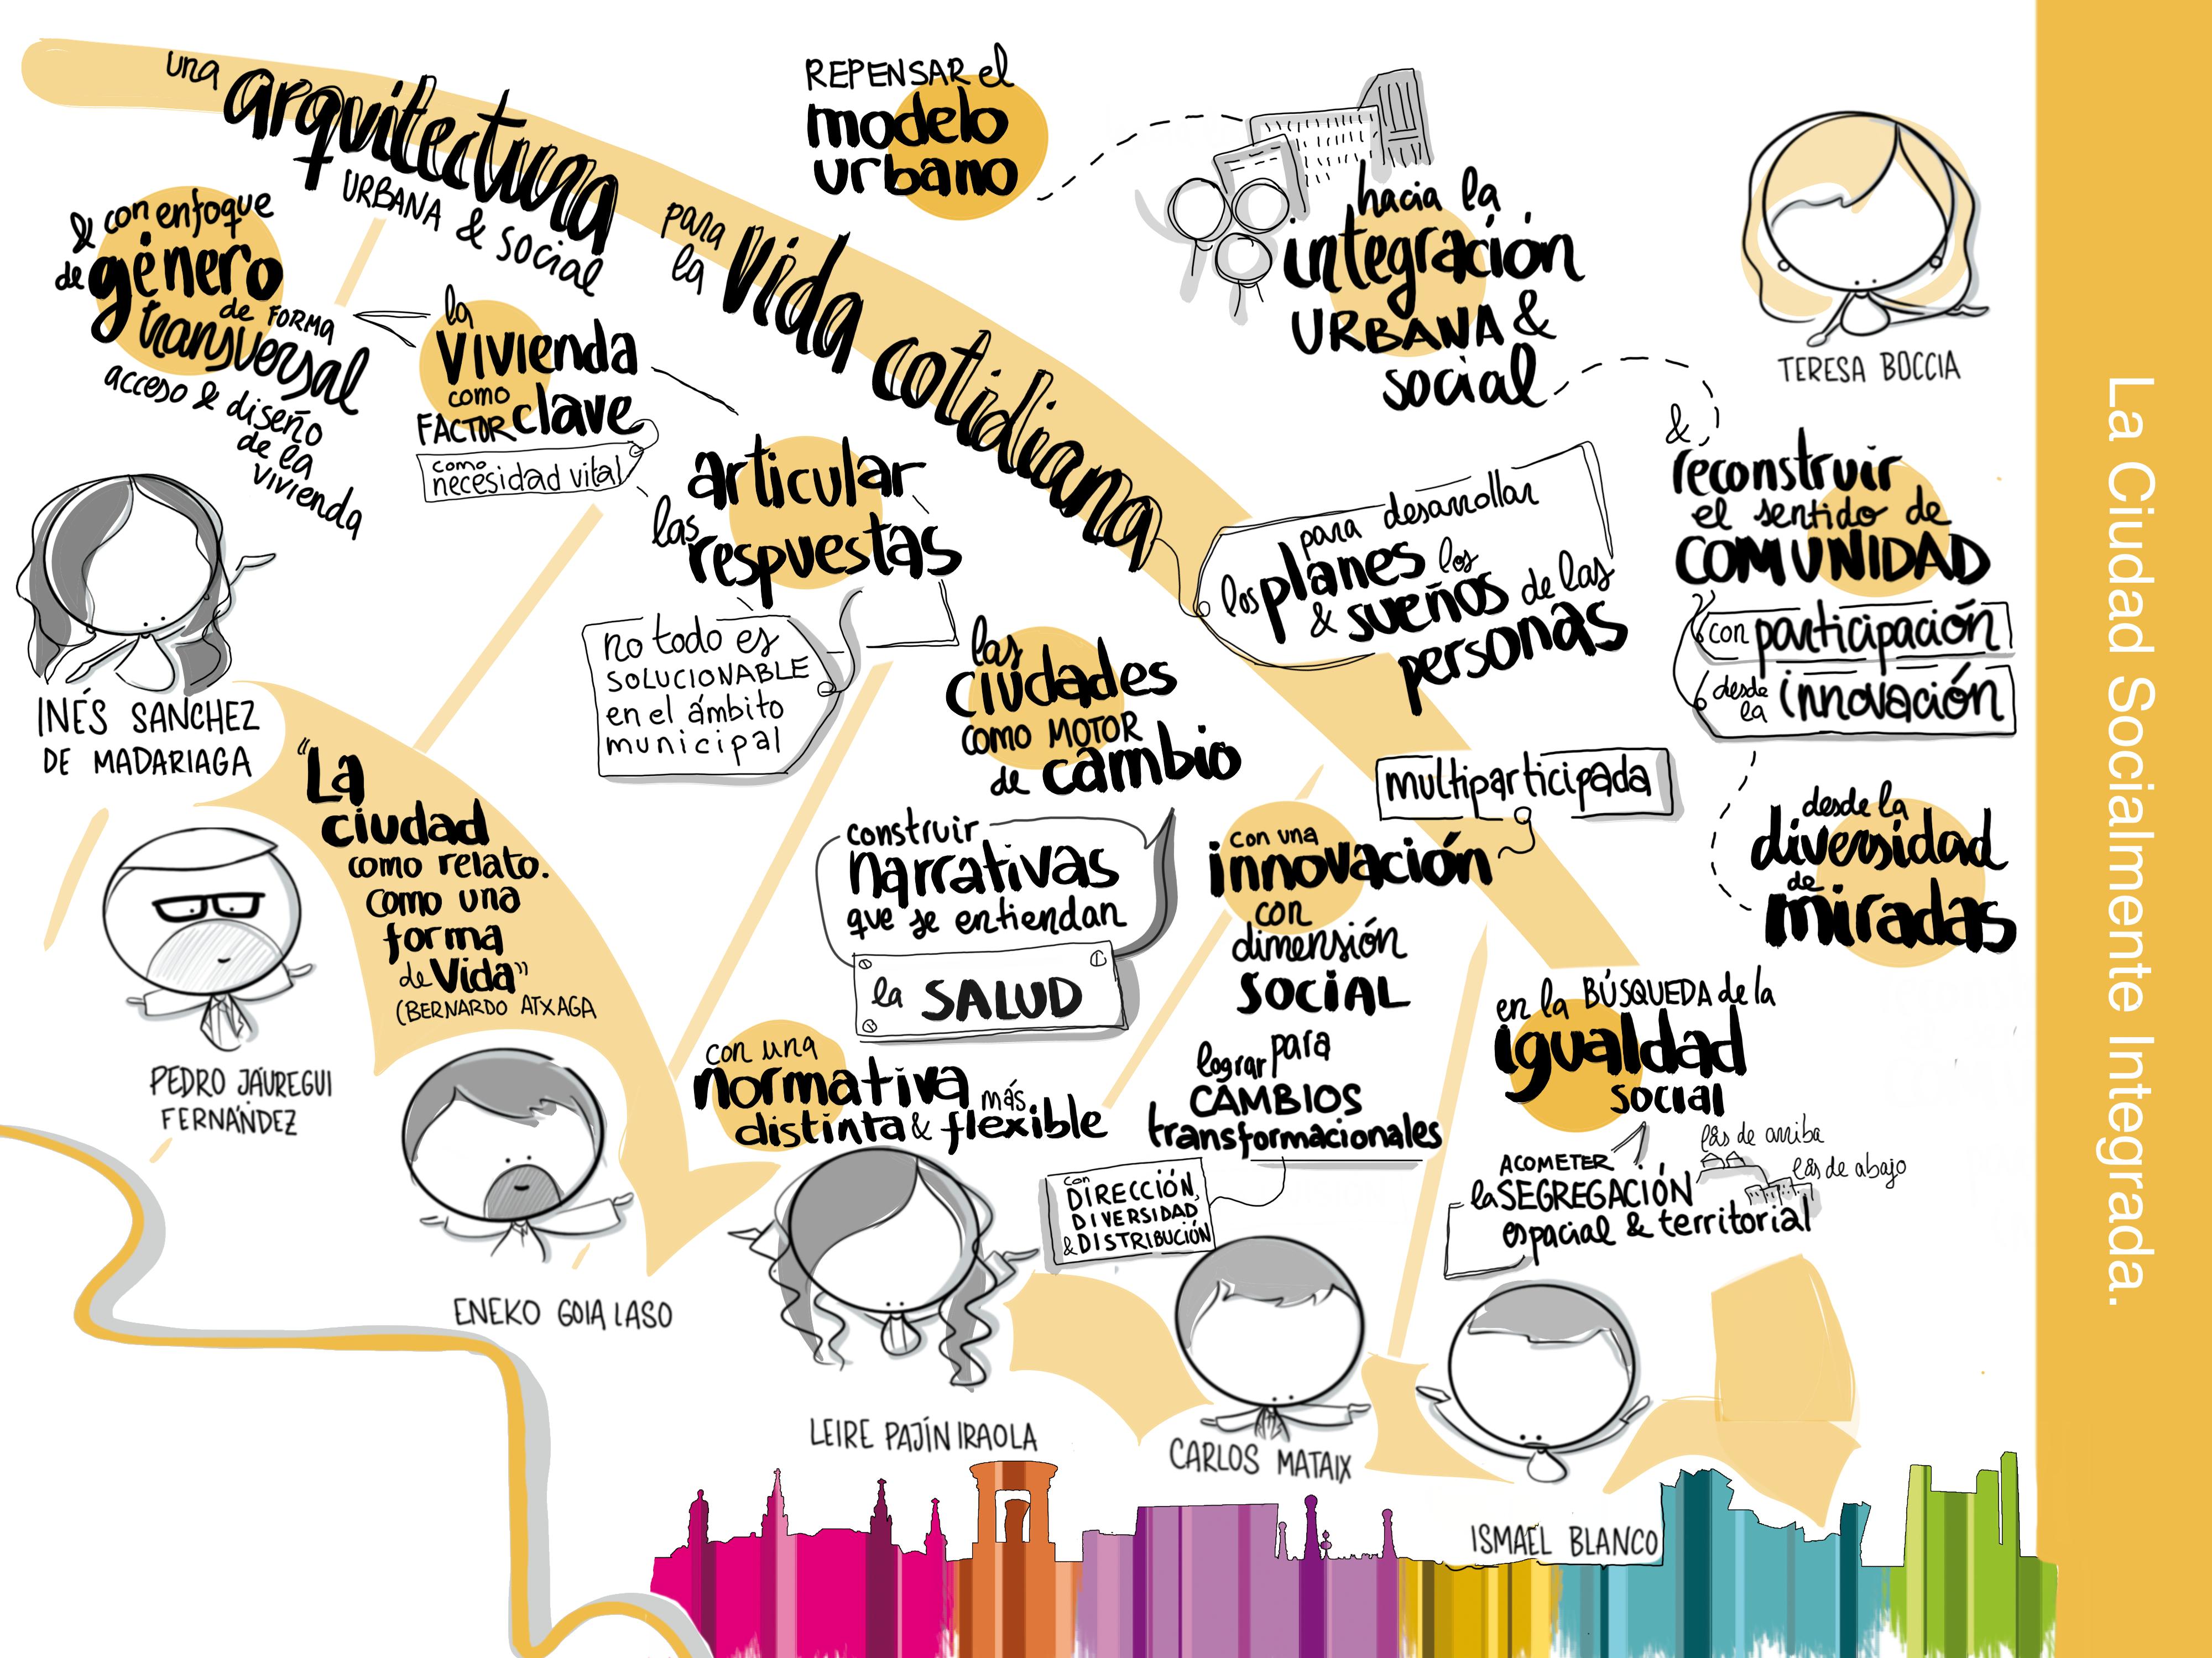 una
arquitectura
URBANA & social
para
la
vida cotidiana
para desarrollar
los planes los
& sueños de las
personas
& con enfoque
de género
de FORMA
transversal
acceso & diseño
de la
vivienda
la
vivienda
como
FACTOR clave
como
necesidad vital
articular
las
respuestas
no todo es
SOLUCIONABLE
en el ámbito
municipal
las
ciudades
como MOTOR
de cambio
construir
narrativas
que se entiendan
la SALUD
con una
normativa más
distinta & flexible
REPENSAR el
modelo
urbano
hacia la
integración
URBANA &
social
&
reconstruir
el sentido de
COMUNIDAD
con participación
desde
la innovación
desde la
diversidad
de
miradas
multiparticipada
con una
innovación
con
dimensión
SOCIAL
para
lograr
CAMBIOS
transformacionales
con
DIRECCIÓN,
DIVERSIDAD
& DISTRIBUCIÓN
en la BÚSQUEDA de la
igualdad
social
ACOMETER
la SEGREGACIÓN
espacial & territorial
l@s de arriba
l@s de abajo
INÉS SANCHEZ
DE MADARIAGA
"La
ciudad
como relato.
como una
forma
de vida"
(BERNARDO ATXAGA
PEDRO JÁUREGUI
FERNÁNDEZ
ENEKO GOIA LASO
LEIRE PAJÍN IRAOLA
CARLOS MATAIX
ISMAEL BLANCO
TERESA BOCCIA
La Ciudad Socialmente Integrada.